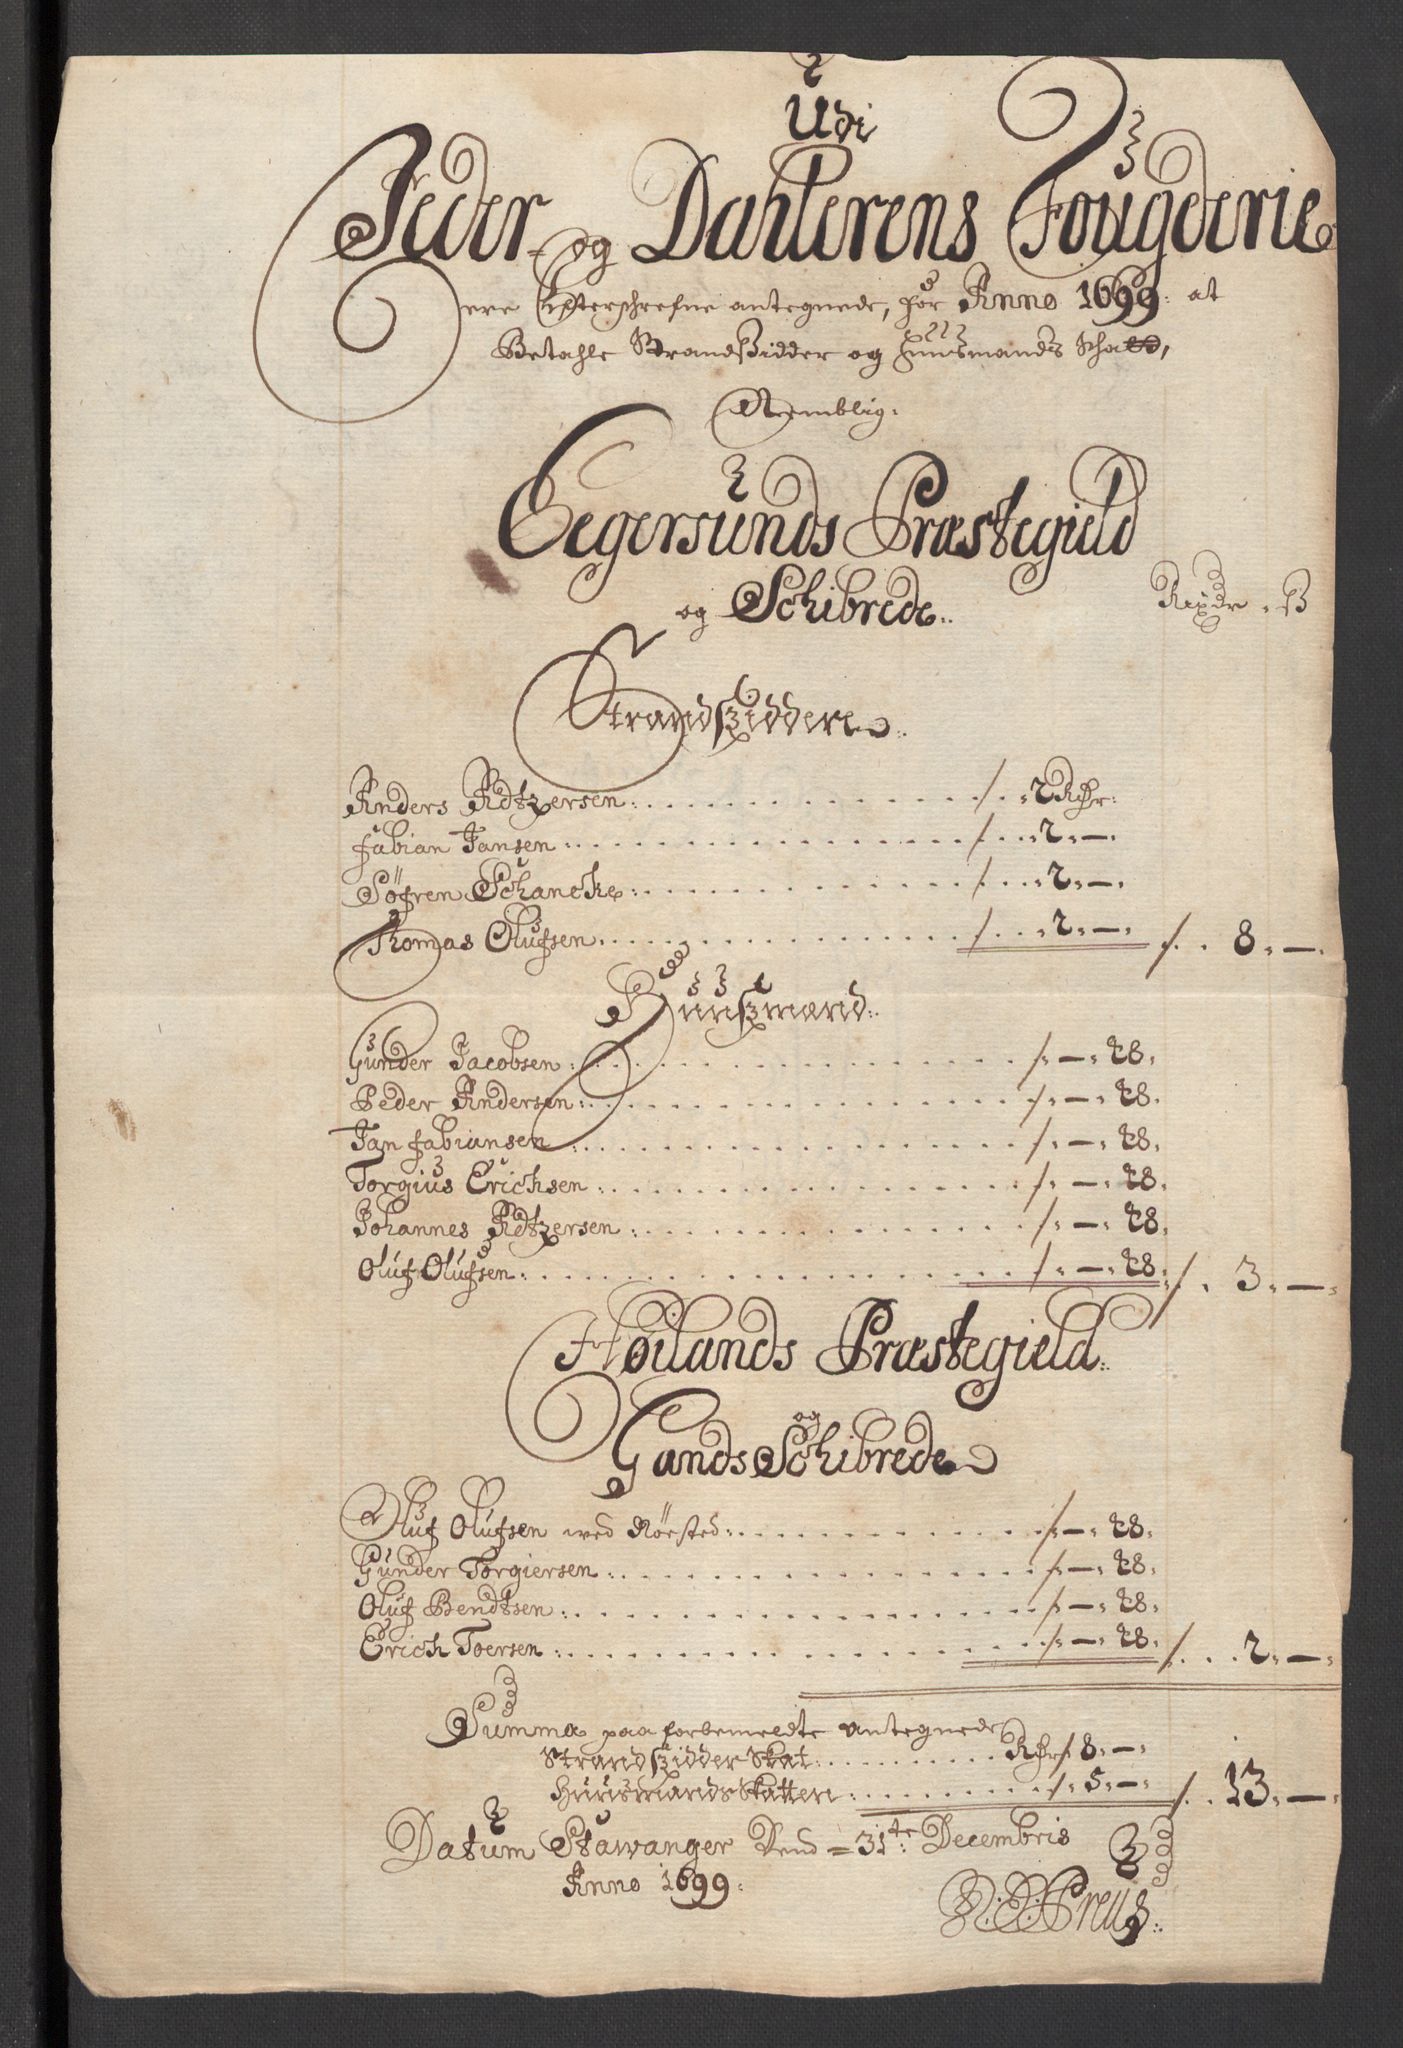 Udi
Jeder- og Dahlerens Fougderie
ere Efterschrefne antegnede, for Anno 1699. at
Betahle Strandsidder og Huusmands Schatt,
Nemblig:
Eegersunds Præstegield
og Schibrede.
Rixdr . ß
Strandsiddere.
Anders Adtzersen: . . . /. . 2 Rdr:
Fabian Jansen: . . . /. . 2. —.
Søfren Schancke: . . . /. . 2. —.
Thomas Olufsen: . . . /. . 2. —. /. . 8. —.
Huusmænd:
Gunder Jacobsen: . . . /. — . 48.
Peder Andersen: . . . /. — . 48.
Jan Fabiansen: . . . /. — . 48.
Torgius Erichsen: . . . /. — . 48.
Johannes Adtzersen: . . . /. — . 48.
Oluf Olufsen: . . . /. — . 48. /. . 3. —.
Høilands Præstegield
og
Gands Schibrede
Oluf Olufsen wed Røested: . . . /. — . 48.
Gunder Torgiersen: . . . /. — . 48.
Oluf Bendtsen: . . . /. — . 48.
Erich Toersen: . . . /. — . 48. /. . . 2. —.
Summa paa forbemeldte antegnede
Strandsidder Skat: . . . Rdr / 8. —.
Huusmands Skatten: . . . /. 5. —. /. . 13. —.
Datum Stawanger Dend = 31te: Decembris
Anno 1699.